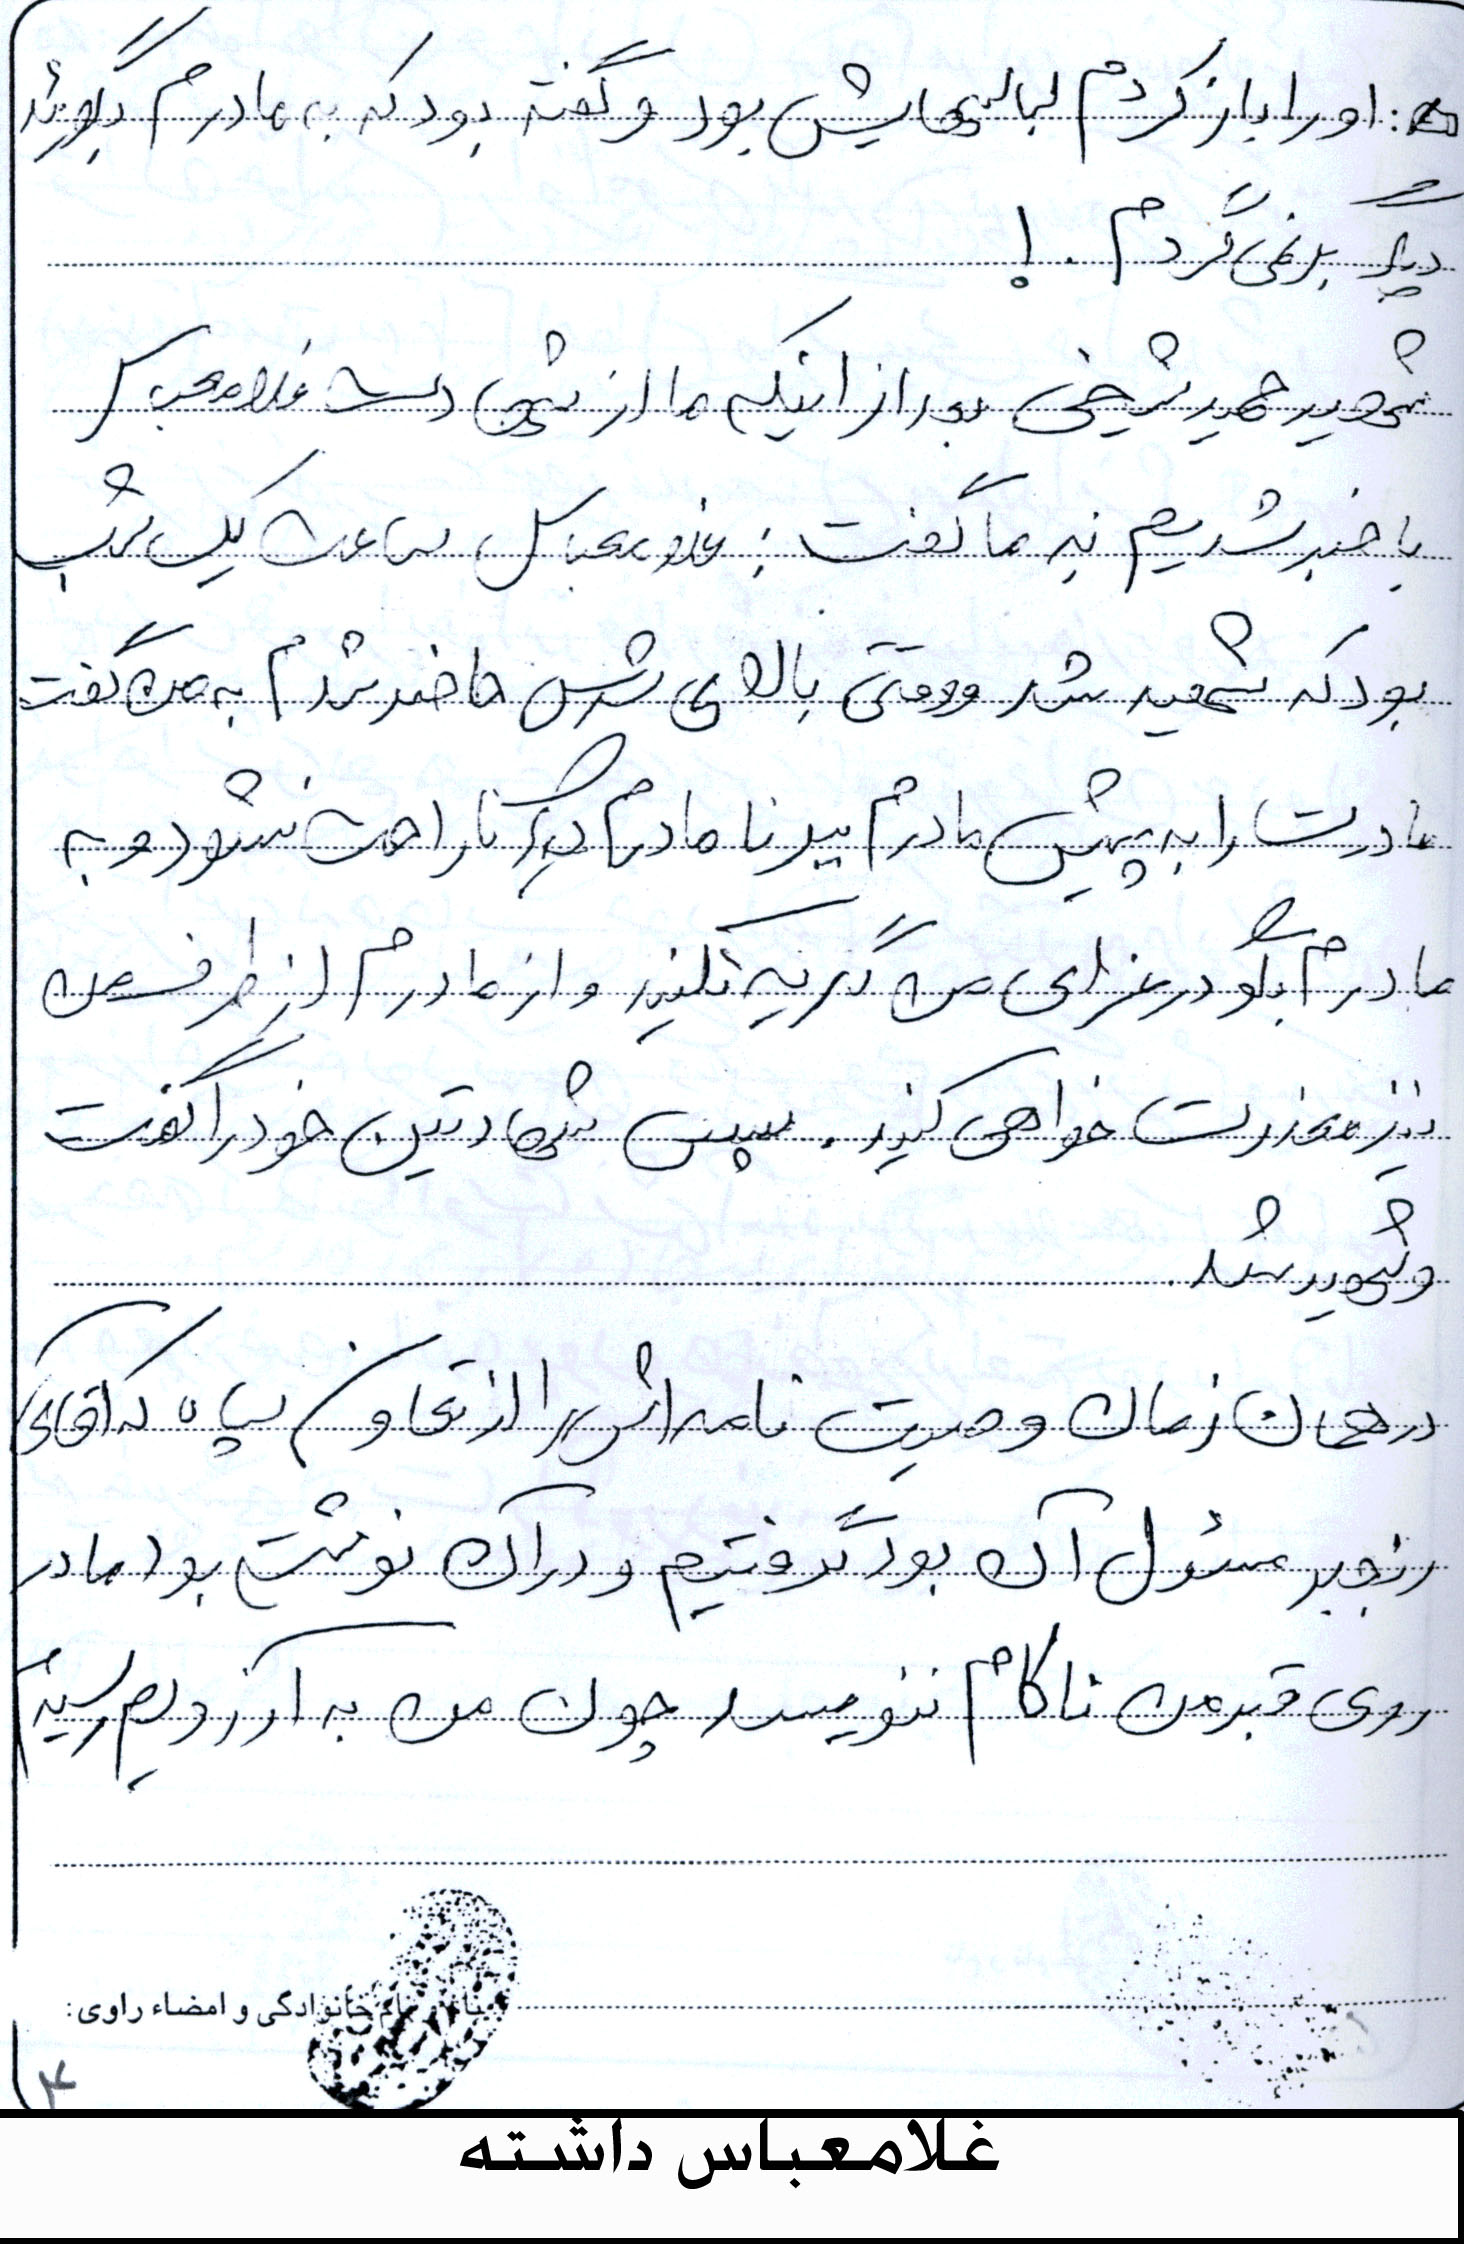 : او را باز کردم لباسهایش بود و گفته بود که به مادرم بگویند
دیگر برنمی گردم . !
شهید حمید شیخی بعد از اینکه ما از شهادت غلامعباس
با خبر شدیم به ما گفت : غلامعباس ساعت یک شب
بود که شهید شد و وقتی بالای سرش حاضر شدم به من گفت
مادرت را به پیش مادرم ببر تا مادرم دیگر ناراحت نشود و به
مادرم بگو در عزای من گریه نکنید و از مادرم از طرف من
نیز معذرت خواهی کنید . سپس شهادتین خود را گفت
و شهید شد .
در همان زمان وصیت نامه اش را از تعاون سپاه که آقای
رنجبر مسئول آن بود گرفتیم و در آن نوشت بود مادر
روی قبر من ناکام ننویسید چون من به آرزویم رسیدم
نام و نام خانوادگی و امضاء راوی:
۴
غلامعباس داشته